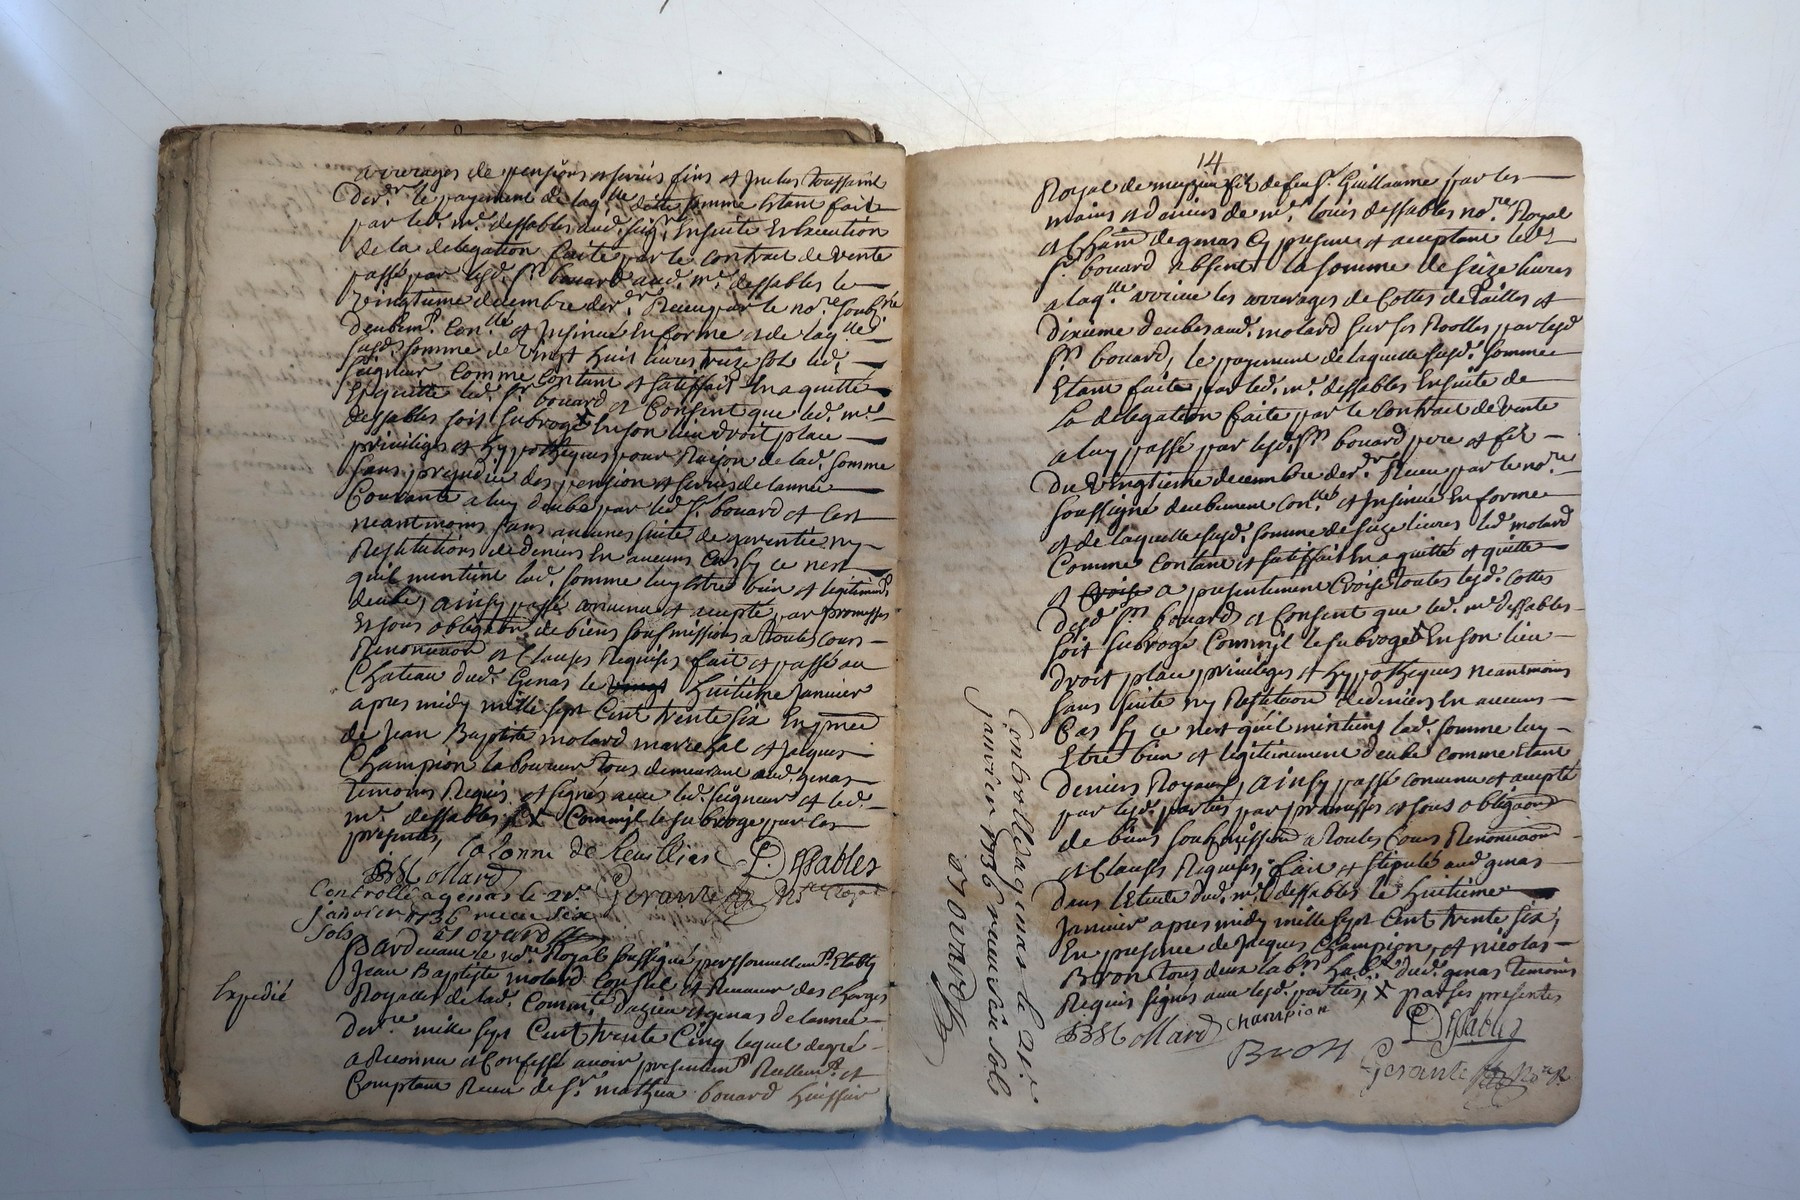 arrerages de pensions et servis finis et echus Toussaint
Der.r le payement de laq.lle ditte somme Etant fait
par led. m.r dessables aud. seig.r Ensuite Et Execution
de la delegation faitte par le contrat de vente
passé par lesd. S.rs bouard aud. m.r dessables le
vingtieme decembre der.r Receu par le no.re soubz.né
deubem.t Con.llé et Insinué En forme et de laq.lle
susd. somme de vingt huit livres treize sols led.
seigneur comme contant et satisfait En a quitté
Et quitte led. S.r bouard et Consent que led. m.r
dessables soit subrogé En son lieu droit place
privileges et hypotheques pour Raison de lad. somme
sans prejudice des pension et servis de lannée
Courante a luy deube par led. S.r bouard et c'est
neantmoins sans aucunes suitte de garentie ny
Restitutions de deniers En aucuns Cas sy ce nest
quil mentient lad. somme luy Estre bien et legitimem.t
deube, ainsy passé convenu et accepté par promesses
Et sous obliga.on de biens sousmissions a toutes cours
Renonciation et Clauses Requises fait et passé au
Chateau dud. Genas le huitieme Janvier
apres midy mille sept Cent trente six En p.nce
de Jean Baptiste molard marechal et Jacques
Champion laboureur tous demeurant aud. genas
temoins Requis et signés avec led. seigneur et led.
m.r dessables X Comm'il le subroge par les
presentes,
BMollard
DEssables
Gerante No.re Royal
Controllé a genas le 21.e
Janvier 1736 receu six
sols
Bovard
Expedié
Pardevant le no.re Royal soussigné personnellem.t Etably
Jean Baptiste molard Consul et Receveur des charges
Royalles de lad. Commu.té Dazieu et genas de lannée
der.re mille sept Cent trente Cinq lequel de gré
a Reconnu et Confessé avoir presentem.t Reellem.t et
Comptant Receu de S.r mathieu bouard huissier
14
Royal de meyzieu fils de feu S.r Guillaume par les
mains et deniers de m.r louis dessables no.re Royal
et Chain de genas Cy present et acceptant led.
S.r bouard absent la somme de seize livres
a laq.lle arrive les arrerages de Cottes de tailles et
Dixieme deubes aud. molard sur ses Roolles par lesd.
S.rs bouard, le payement de laquelle susd. somme
Etant faitte par led. m.r dessables Ensuite de
la delegation faitte par le Contrat de vente
a luy passé par lesd. S.rs bouard pere et fils
Du vingtieme decembre der.r Receu par le no.re
soussigné deubement Con.llé et Insinué En forme
et de laquelle susd. somme de seize livres led. molard
Comme Contant et satisfait En a quitté et quitte
et Croise a presentement Croisé toutes lesd. Cottes
desd. S.rs bouards et Consent que led. m.r dessables
soit subrogé Comm'il le subroge En son lieu
droit place privileges et hypotheques neantmoins
sans suitte ny Restitution de deniers En aucuns
Cas sy ce nest quil mintient lad. somme luy
Etre bien et legitimement deube comme etant
deniers Royaux, ainsy passé convenu et accepté
par lesd. parties par promesses et sous obligaons
de biens sousmission a toutes Cours Renonciaons
et clauses Requises, fait et stipulé aud. genas
Dans l'Etude dud. m.r dessables le huitieme
Janvier apres midy mille sept Cent trente six,
En presence de Jacques Champion, et nicolas
Bron tous deux lab.rs hab.ts dud. genas temoins
Requis signés avec lesd. parties, X par ses presentes
BMollard Champion DEssables
Bron Gerante No.re R.
Controllé a genas le 21.e
Janvier 1736 receu six sols
Bovard